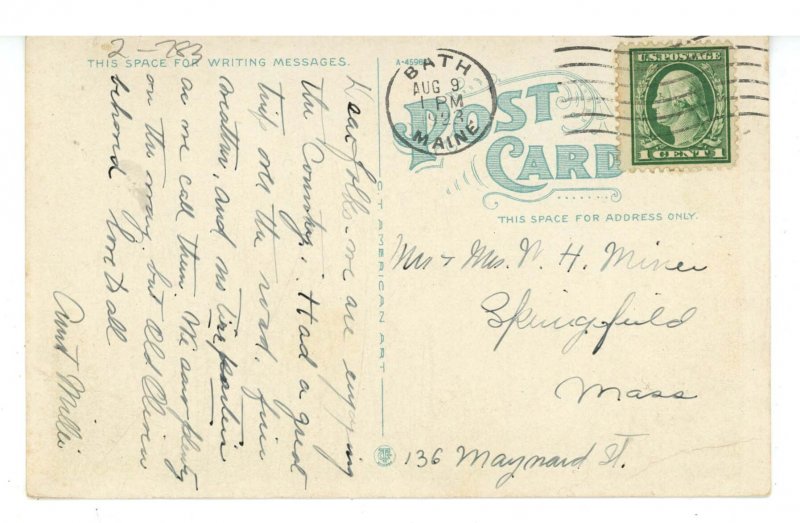 2-783
THIS SPACE FOR WRITING MESSAGES.
Dear folks - we are enjoying
the Country. Had a great
trip over the road, fine
weather, and no tire parties
as we call them. We saw plenty
on the way, but Old Oliver
behaved love to all
Aunt Millie
C. T. AMERICAN ART
A-4596
BATH
AUG 9
1 PM
1923
MAINE
POST
CARD
U.S. POSTAGE
1 CENT 1
THIS SPACE FOR ADDRESS ONLY.
Mr + Mrs. W. H. Miner
Springfield
Mass
136 Maynard St.